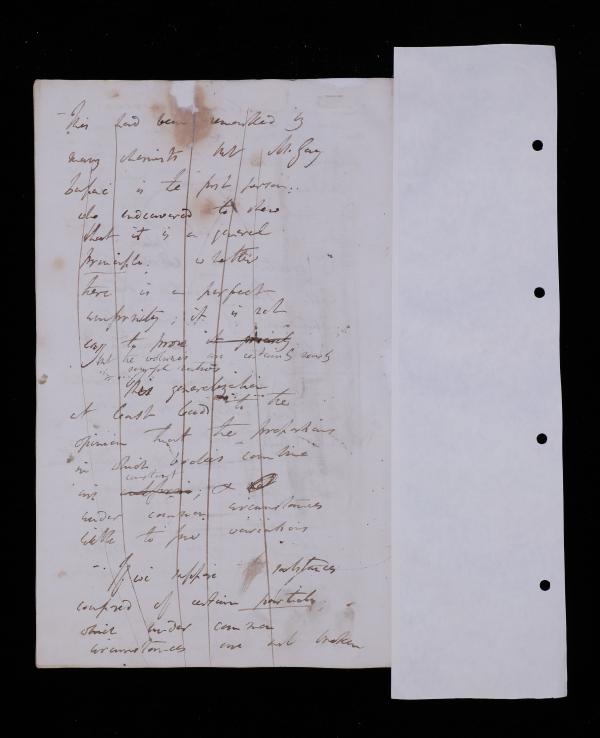 This had been remarked by
many chemists but M. Gay
Lussac is the first person
who endeavored to shew
that it is a general
principle. whether
there is a perfect
uniformity; it is not
easy to prove it precisely
but the volumes are certainly nearly
simple ratios
This generalization
at least leads to the
opinion that the proportions
in which bodies combine
constant
are uniform; &
under common circumstances
liable to few variations
If we suppose substances
composed of certain particles
which under common
circumstances are not broken